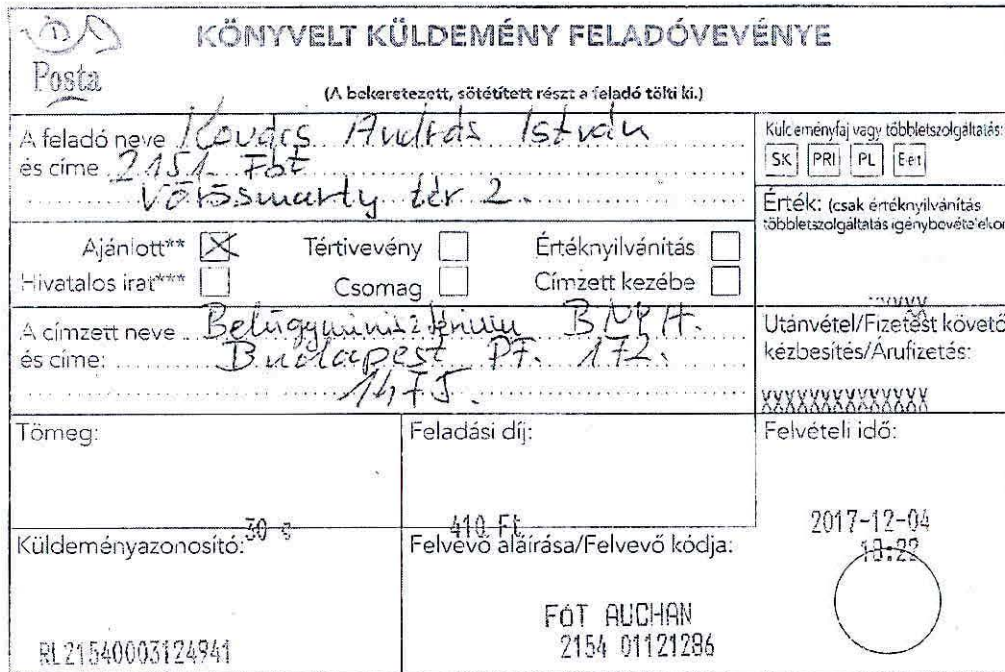 Posta
KÖNYVELT KÜLDEMÉNY FELADÓVEVÉNYE
(A bekeretezett, sötétített részt a feladó tölti ki.)
A feladó neve Kovács András István
és címe 2151. Fót
Vörösmarty tér 2.
Küldeményfaj vagy többletszolgáltatás:
SK PRI PL Eet
Érték: (csak értéknyilvánítás
többletszolgáltatás igénybevételekor
Ajánlott** Tértivevény Értéknyilvánítás
Hivatalos irat*** Csomag Címzett kezébe
A címzett neve Belügyminisztérium
és címe: Budapest Pf. 172.
1475.
Utánvétel/Fizetést követő
kézbesítés/Árufizetés:
XXXXXXXXXXXXXX
Tömeg: Feladási díj: Felvételi idő:
30 g 410 Ft 2017-12-04
Küldeményazonosító: Felvevő aláírása/Felvevő kódja:
FÓT AUCHAN
RL21540003124941 2154 01121286